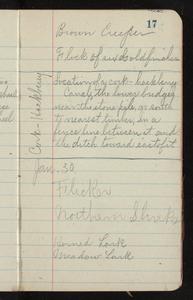 17
Brown Creeper
Flock of six Goldfinches
Cork-Hackberry
Location of a cork-hackberry
Canal, the lower bridge,
near the stone pile, or south
nearest timber, in a
fence line between it and
the ditch toward east of it
Jan. 30
Flicker
Northern Shrike
Horned Lark
Meadow Lark